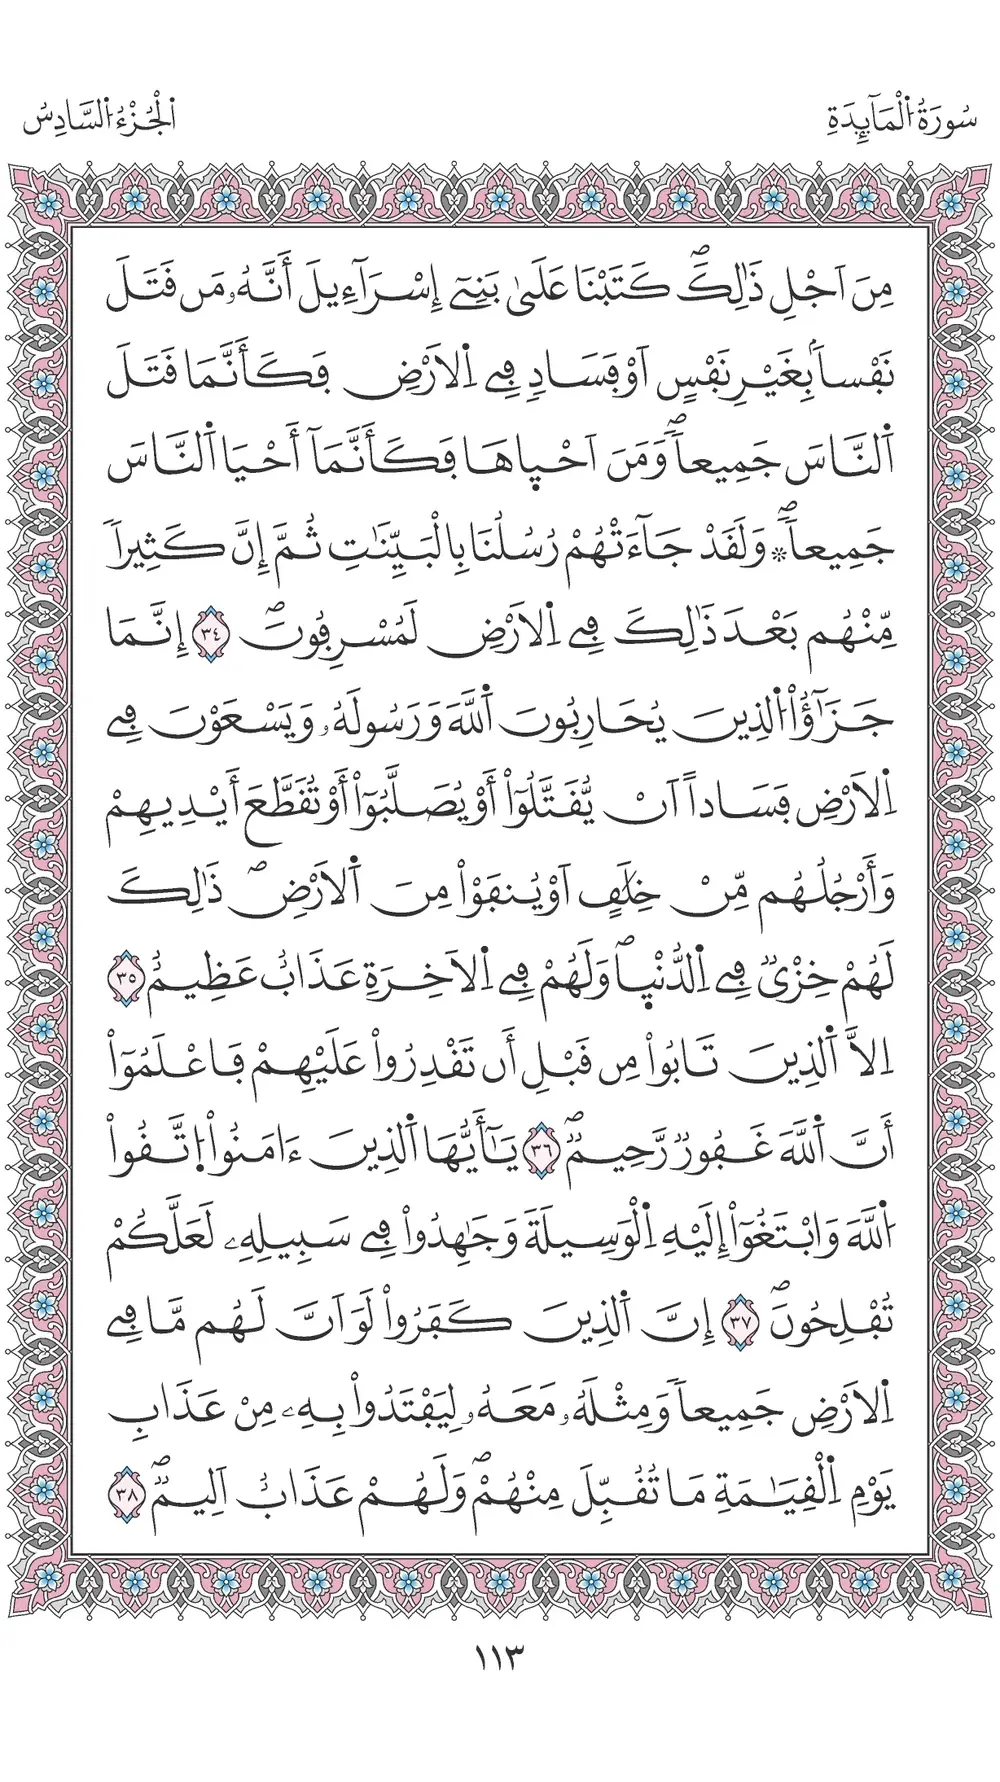 سُورَةُ اُ۬لْمَآئِدَةِ
اُ۬لْجُزْءُ اُ۬لسَّادِسُ
مِنَ اَجْلِ ذَٰلِكَۖ كَتَبْنَا عَلَىٰ بَنِےٓ إِسْرَآءِيلَ أَنَّهُۥ مَن قَتَلَ
نَفْساَۢ بِغَيْرِ نَفْسٍ اَوْ فَسَادٖ فِے اِ۬لَارْضِ فَكَأَنَّمَا قَتَلَ
اَ۬لنَّاسَ جَمِيعاٗۖ وَمَنَ اَحْي۪اهَا فَكَأَنَّمَآ أَحْيَا اَ۬لنَّاسَ
جَمِيعاٗۖ ۞ وَلَقَدْ جَآءَتْهُمْ رُسُلُنَا بِالْبَيِّنَٰتِ ثُمَّ إِنَّ كَثِيراٗ
مِّنْهُم بَعْدَ ذَٰلِكَ فِے اِ۬لَارْضِ لَمُسْرِفُونَۖ ٣٤ إِنَّمَا
جَزَٰٓؤُاْ اُ۬لذِينَ يُحَارِبُونَ اَ۬للَّهَ وَرَسُولَهُۥ وَيَسْعَوْنَ فِے
اِ۬لَارْضِ فَسَاداً اَنْ يُّقَتَّلُوٓاْ أَوْ يُصَلَّبُوٓاْ أَوْ تُقَطَّعَ أَيْدِيهِمْ
وَأَرْجُلُهُم مِّنْ خِلَٰفٍ اَوْ يُنفَوْاْ مِنَ اَ۬لَارْضِۖ ذَٰلِكَ
لَهُمْ خِزْيٞ فِے اِ۬لدُّنْي۪اۖ وَلَهُمْ فِے اِ۬لَاخِرَةِ عَذَابٌ عَظِيمٌ ٣٥
اِلَّا اَ۬لذِينَ تَابُواْ مِن قَبْلِ أَن تَقْدِرُواْ عَلَيْهِمْ فَاعْلَمُوٓاْ
أَنَّ اَ۬للَّهَ غَفُورٞ رَّحِيمٞۖ ٣٦ يَٰٓأَيُّهَا اَ۬لذِينَ ءَامَنُواْ اُ۪تَّقُواْ
اُ۬للَّهَ وَابْتَغُوٓاْ إِلَيْهِ اِ۬لْوَسِيلَةَ وَجَٰهِدُواْ فِے سَبِيلِهِۦ لَعَلَّكُمْ
تُفْلِحُونَۖ ٣٧ إِنَّ اَ۬لذِينَ كَفَرُواْ لَوَ اَنَّ لَهُم مَّا فِے
اِ۬لَارْضِ جَمِيعاٗ وَمِثْلَهُۥ مَعَهُۥ لِيَفْتَدُواْ بِهِۦ مِنْ عَذَابِ
يَوْمِ اِ۬لْقِيَٰمَةِ مَا تُقُبِّلَ مِنْهُمْۖ وَلَهُمْ عَذَابٌ اَلِيمٞۖ ٣٨
١١٣